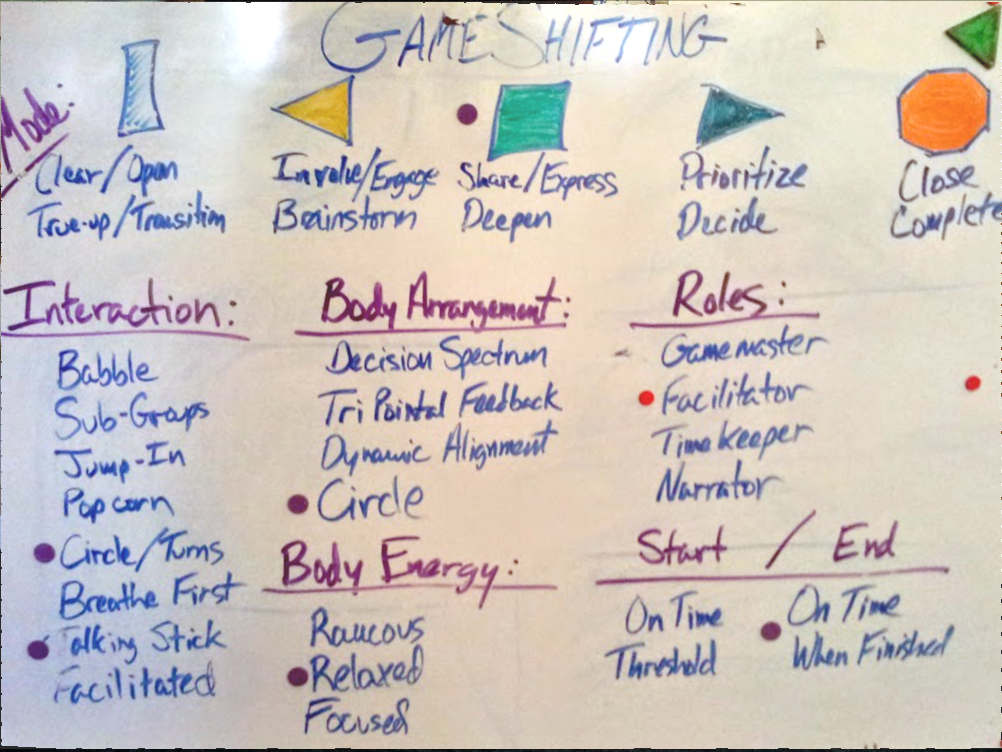 GAMESHIFTING
Mode:
Clear/Open
True-up/Transition
Involve/Engage
Brainstorm
Share/Express
Deepen
Prioritize
Decide
Close
Complete
Interaction:
Babble
Sub-Groups
Jump-In
Popcorn
Circle/Turns
Breathe First
Talking Stick
Facilitated
Body Arrangement:
Decision Spectrum
Tri Pointal Feedback
Dynamic Alignment
Circle
Body Energy:
Raucous
Relaxed
Focused
Roles:
Gamemaster
Facilitator
Timekeeper
Narrator
Start / End
On Time
Threshold
On Time
When Finished